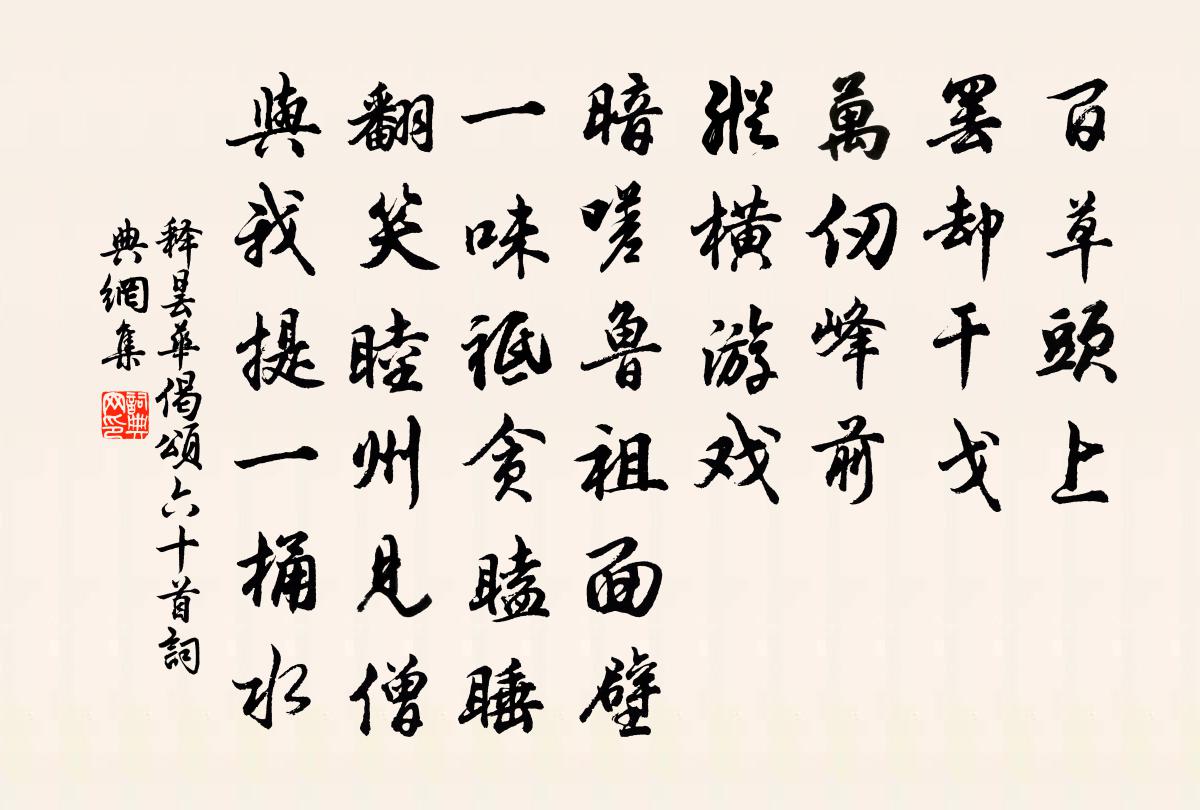 百草頭上
罢却干戈
萬仞峰前
縱橫游戏
暗嗟鲁祖面壁
一味祗贪瞌睡
翻笑睦州見僧
與我提一桶水
释曇華偈頌六十首詞
典網集
詞典网印